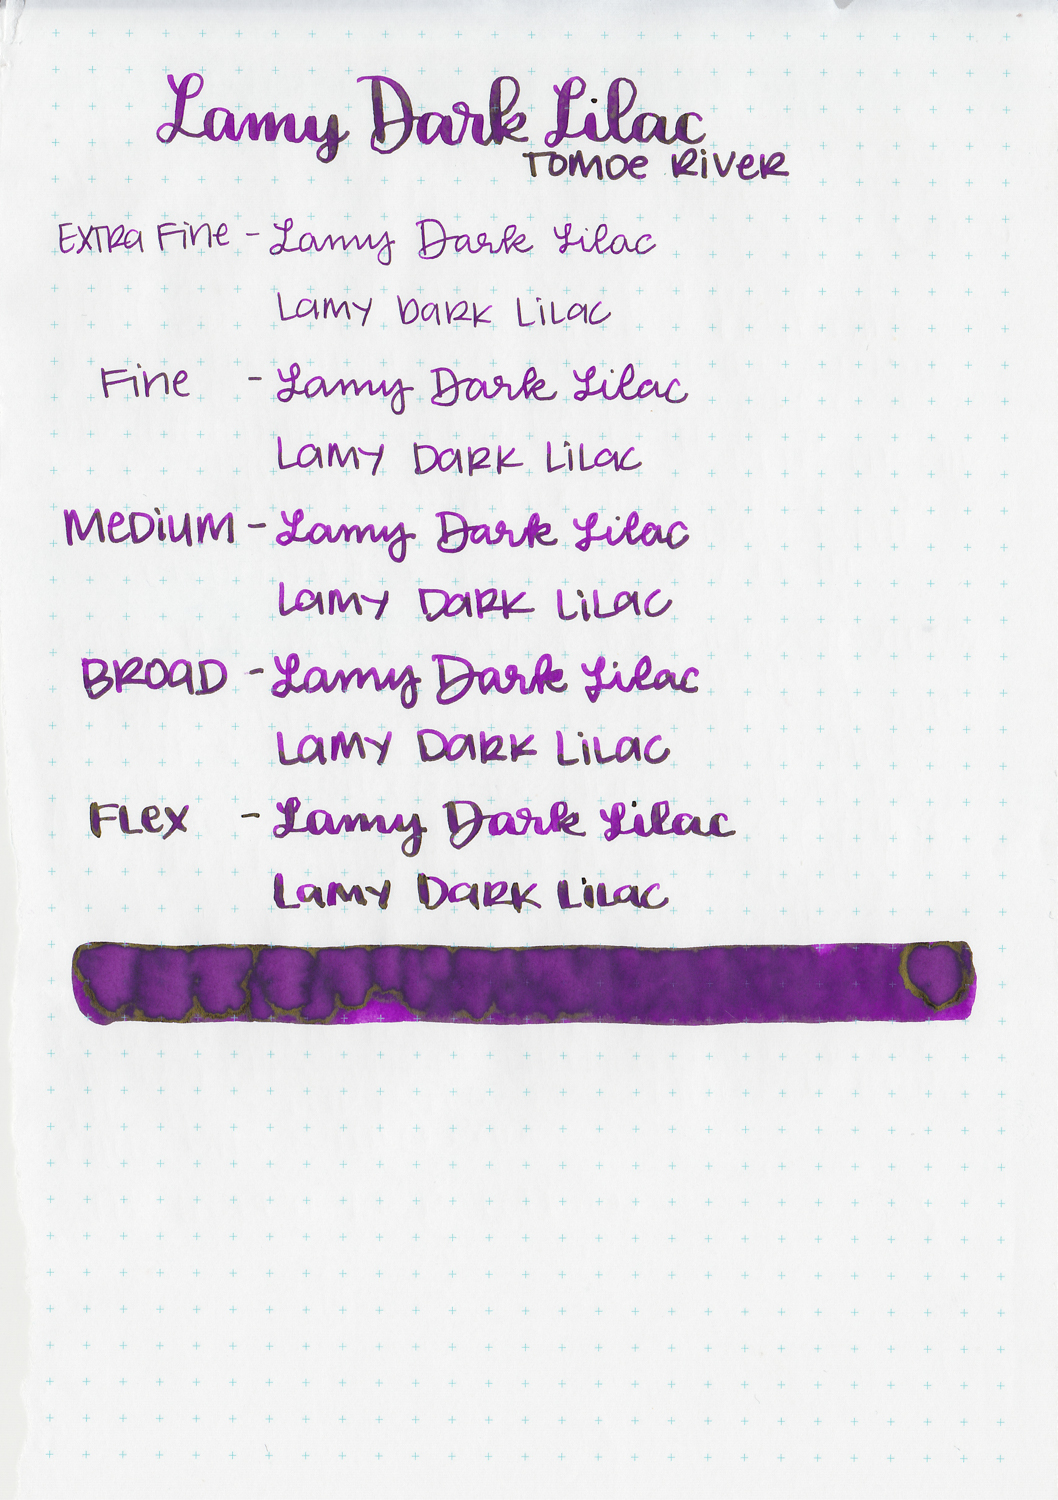 Lamy Dark Lilac
TOMOE RIVER
EXTRA Fine - Lamy Dark Lilac
LAMY DARK LiLAC
Fine - Lamy Dark Lilac
LAMY DARK LiLAC
MeDiUM - Lamy Dark Lilac
LAMY DARK LiLAC
BROAD - Lamy Dark Lilac
LAMY DARK LiLAC
FLex - Lamy Dark Lilac
LAMY DARK LiLAC